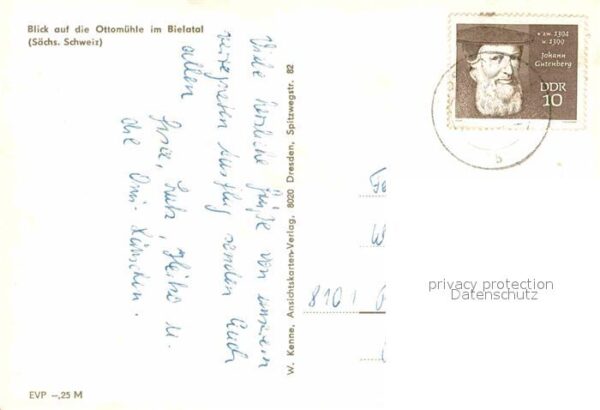 Blick auf die Ottomühle im Bielatal
(Sächs. Schweiz)
Viele herzliche Grüße von unserem
verregneten Ausflug senden Euch
allen
Lutz, Heike u.
die Omi
EVP –,25 M
W. Kenne, Ansichtskarten-Verlag, 8020 Dresden, Spitzwegstr. 82
v zw. 1394
u. 1399
Johann
Gutenberg
DDR
10
8101
privacy protection
Datenschutz